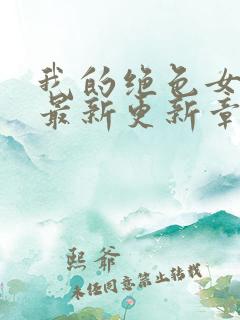 我的绝色女
最新更新章
熙爷
未经同意禁止转载